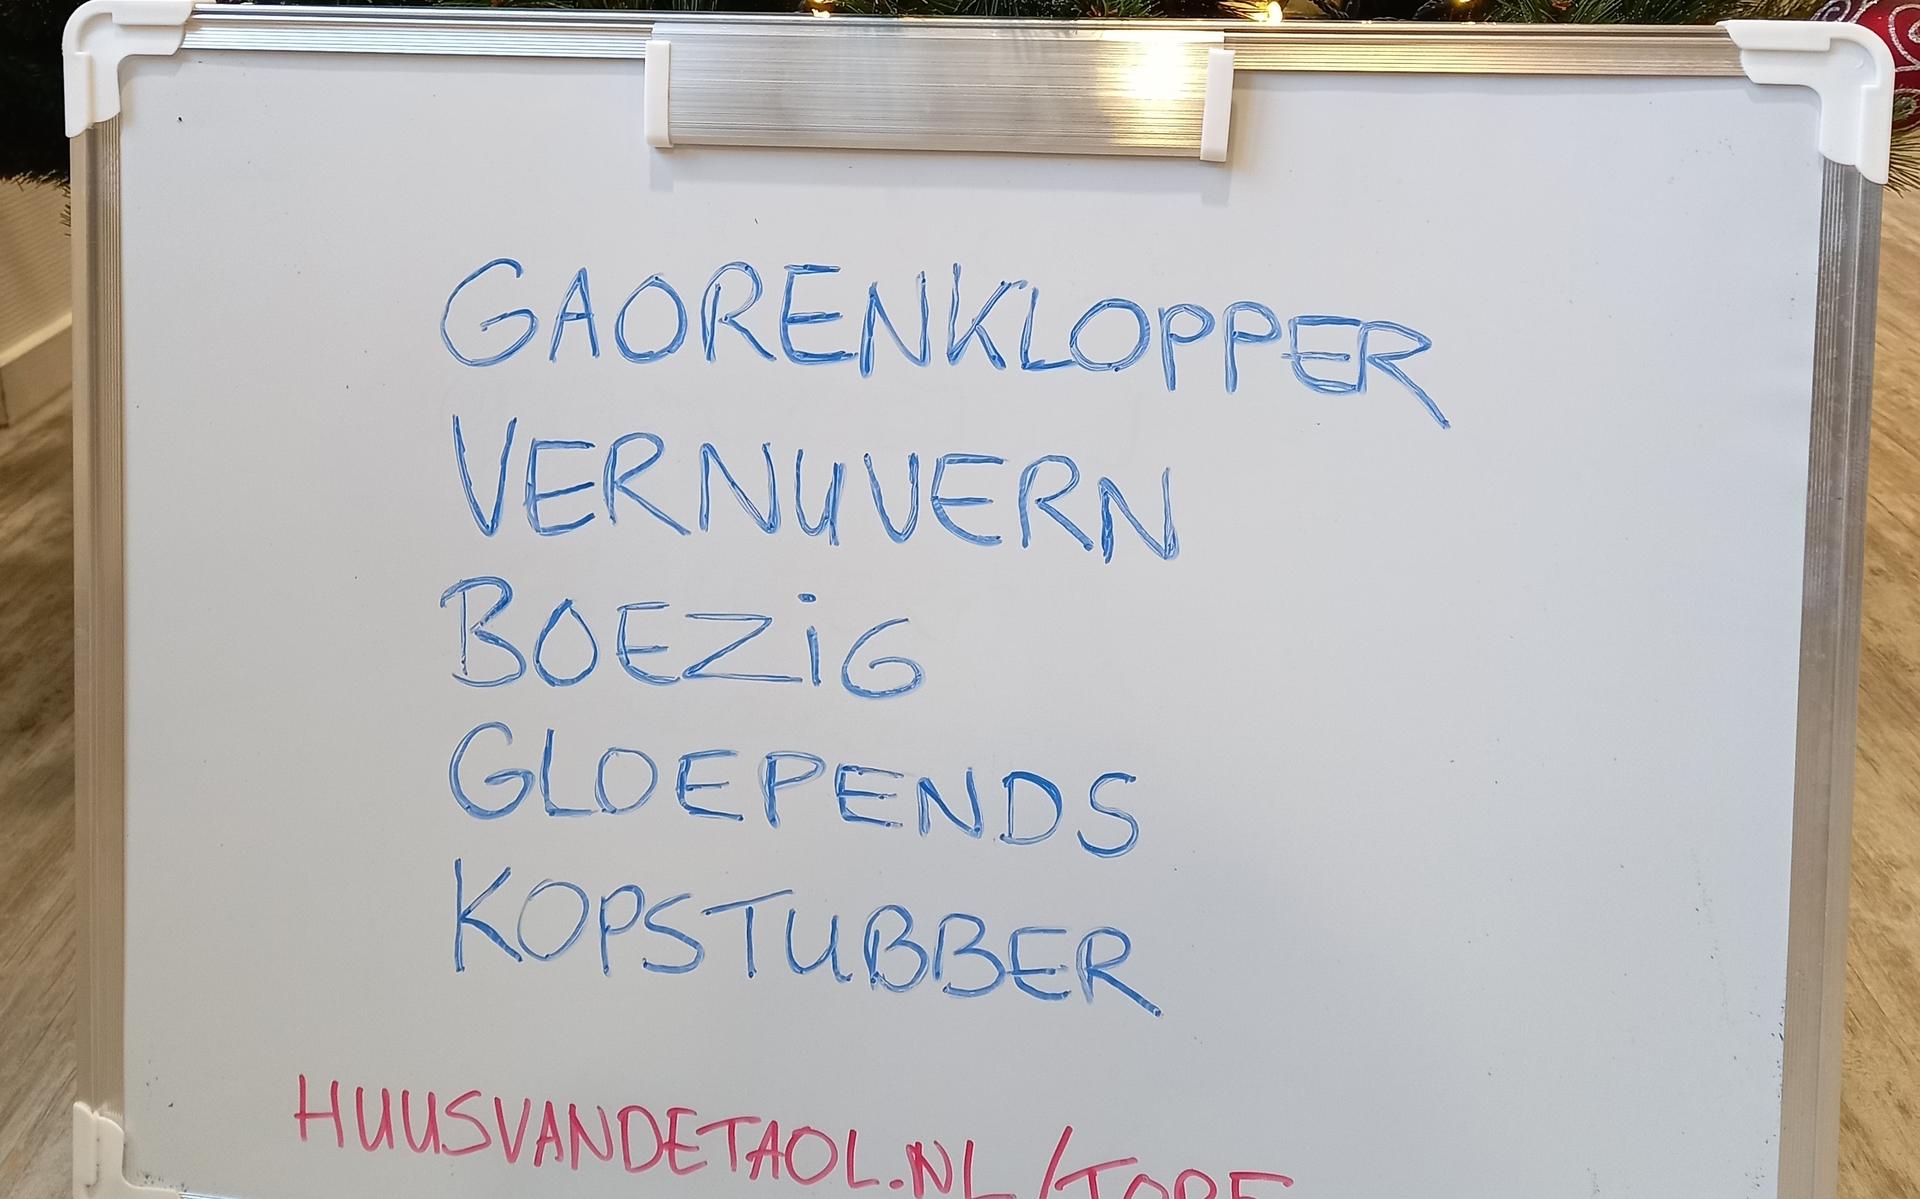 GAORENKLOPPER
VERNUVERN
BOEZiG
GLOEPENDS
KOPSTUBBER
HUUSVANDETAOL.NL